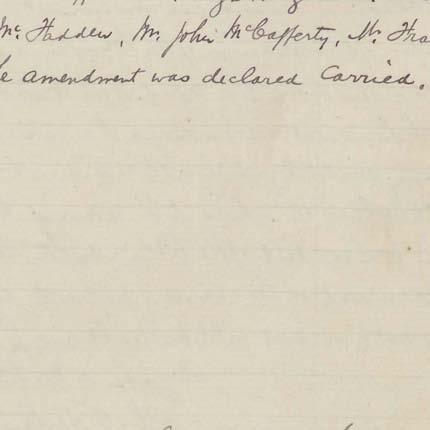 Mc Fadden, Mr. John McCafferty, Mr. Fra
e amendment was declared Carried.